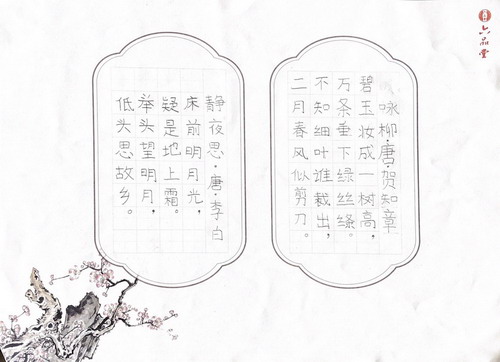 六品堂
咏柳·唐·贺知章
碧玉妆成一树高，
万条垂下绿丝绦。
不知细叶谁裁出，
二月春风似剪刀。
静夜思·唐·李白
床前明月光，
疑是地上霜。
举头望明月，
低头思故乡。